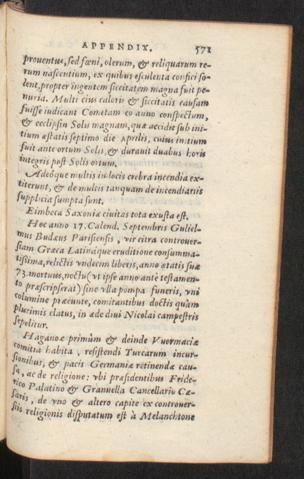 APPENDIX. 571
prouentus, sed fœni, olerum, & reliquarum re-
rum nascentium, ex quibus esculenta confici so-
lent, propter ingentem siccitatem magna fuit pe-
nuria. Multi eius caloris & siccitatis causam
fuisse iudicant Cometam eo anno conspectum,
& ecclipsin Solis magnam, quæ accidit sub ini-
tium æstatis septimo die Aprilis, cuius initium
fuit ante ortum Solis, & durauit duabus horis
integris post Solis ortum.
Adeóque multis in locis crebra incendia ex-
titerunt, & de multis tanquam de incendiariis
supplicia sumpta sunt.
Eimbeca Saxoniæ ciuitas tota exusta est.
Hoc anno 17. Calend. Septembris Guliel-
mus Budæus Parisiensis, vir citra controuer-
siam Græca Latináque eruditione consumma-
tissima, relictis vndecim liberis, anno ætatis suæ
73. mortuus, noctu (vt ipse anno ante testamen-
to præscripserat) sine vlla pompa funeris, vni
columine præeunte, comitantibus doctis quàm
plurimis elatus, in æde diui Nicolai campestris
sepelitur.
Haganoæ primùm & deinde Vuormaciæ
comitia habita, resistendi Turcarum incur-
sionibus, & pacis Germaniæ retinendæ cau-
sa, ac de religione: vbi præsidentibus Fride-
rico Palatino & Granuella Cancellario Cæ-
saris, de vno & altero capite ex controuer-
siis religionis disputatum est à Melanchtone